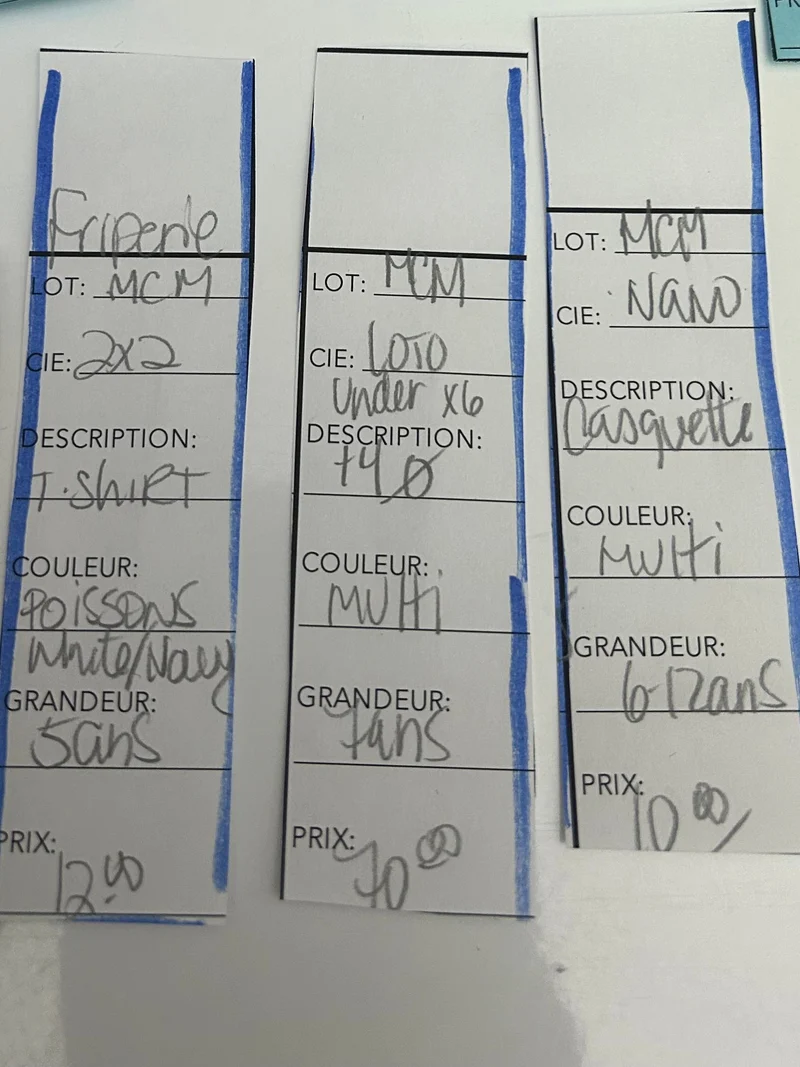 Friperie
LOT: MCM
CIE: 2x2
DESCRIPTION:
T-ShiRT
COULEUR:
POiSSONS
White/Navy
GRANDEUR:
5ans
PRIX:
12.00
LOT: MCM
CIE: LOTO
Under x6
DESCRIPTION:
COULEUR:
MULTi
GRANDEUR:
7ans
PRIX:
70 00
LOT: MCM
CIE: NANO
DESCRIPTION:
Casquette
COULEUR:
MULTi
GRANDEUR:
6-12ans
PRIX:
10 00/